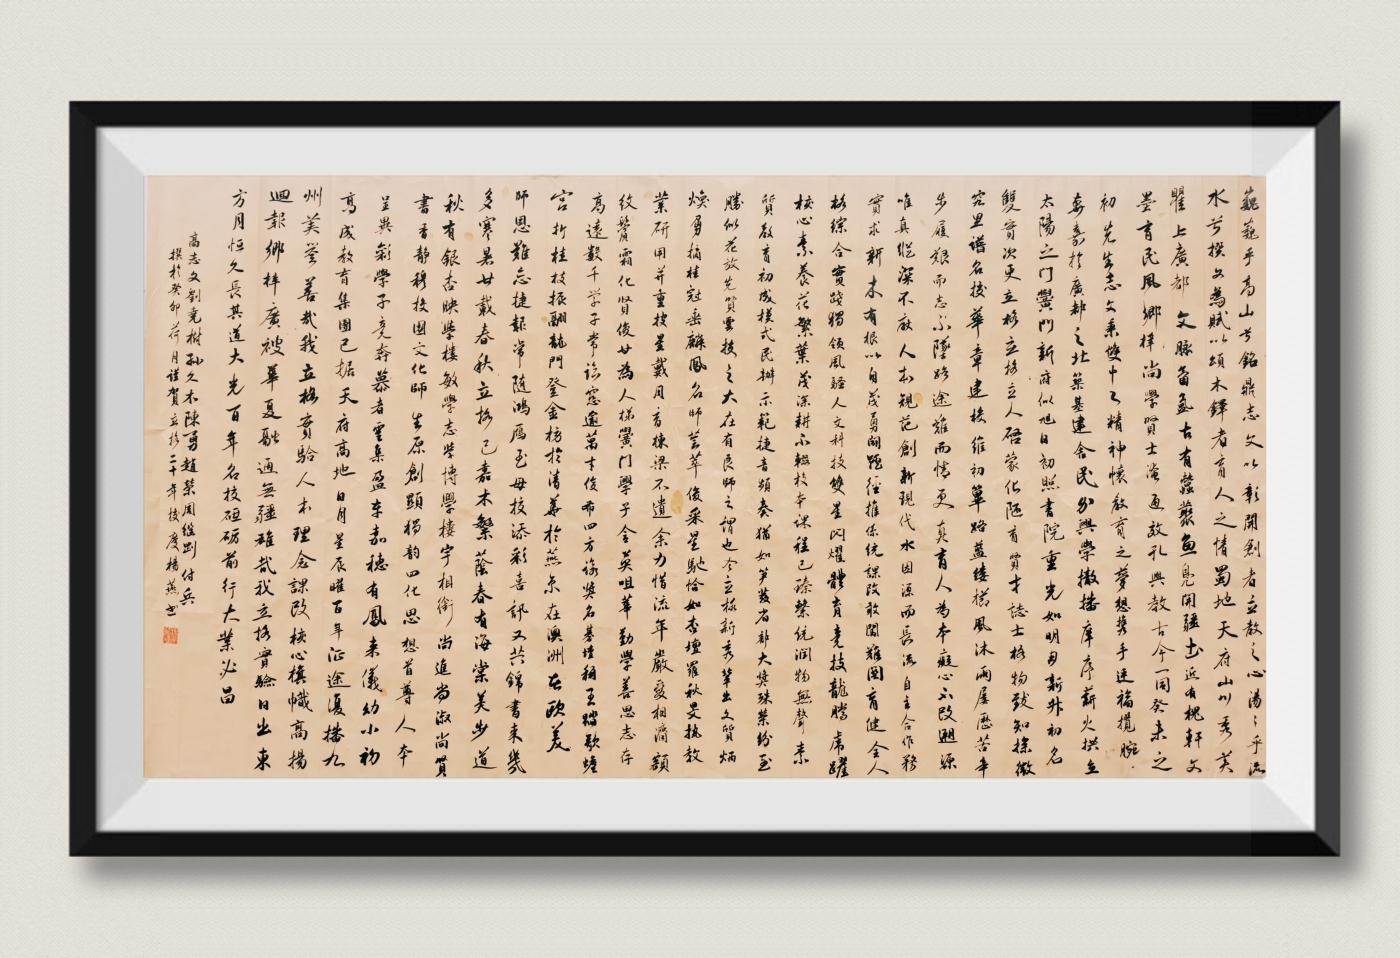 巍巍乎高山兮銘鼎志文以彰開創者立教之心湯湯乎流
水兮撰文為賦以頌木鐸者育人之情蜀地天府山川秀美
瞿上廣都文脈畜盈古有蠶叢魚鳧開疆土近有槐軒文
墨育民風鄉梓尚學賢士淹通敦礼興教古今一同癸未之
初先生志文秉雙中之精神懷教育之夢想攜手速福攬腕
嘉豪於廣都之北築基建舍民办興學撒播庠序薪火拱立
太陽之門黌門新府似旭日初照書院重光如明月新升初名
雙實次更立格立格立人啓蒙化陋育賢才誌士格物致知探微
究里譜名校華章建校維初篳路藍縷櫛風沐雨屢歷苦辛
步履艱而志不墜路途难而情更真育人為本癡心不改溯源
唯真從深不厭人本規范創新現代水因源而長流自主合作務
實求新木有根以自茂勇闢蹊徑推係統課改敢闖難關育健全人
格綜合實踐獨領風騷人文科技雙星闪耀體育竞技龍騰虎躍
核心素養花繁葉茂深耕不輟校本課程已臻繁統润物無聲素
質教育初成模式民辦示範捷音頻奏猶如笋發省部大獎殊榮纷至
勝似花放先賢雲校之大在有良師之謂也今立格新秀輩出文質炳
煥勇摘桂冠垂麟鳳名師荟萃俊采星馳恰如杏壇羅秋旻执教
業研用并重披星戴月育棟梁不遺余力惜流年嚴爱相濟額
纹鬢霜化賢俊甘為人梯黌門學子含英咀華勤學善思志存
高遠數千学子常誌窓逾萬才俊布四方諸獎名基壇稱王踏歌蟾
宮折桂枝振翮龍門登金榜於清華於燕京在澳洲在欧美
師恩難忘捷報常随鴻雁至母校添彩喜訊又共錦書來幾
多寒暑廿載春秋立格已嘉木繁蔭春有海棠美步道
秋有銀杏映學樓敏學志学博學樓宇相銜尚進尚淑尚質
書香静穆校園文化師生原創顯獨韵四化思想首尊人本
呈異彩學子竞奔慕者雲集盈车嘉穗有鳳来儀幼小初
高成教育集團已据天府高地日月星辰曜百年征途復播九
州美誉善哉我立格實驗人本理念課改核心旗幟高揚
迴報鄉梓廣被華夏融通無疆雄哉我立格實驗日出東
方月恒久長其道大光百年名校砥砺前行大業必昌
高志文劉竞樹孙久木陳勇趙榮周继剛付兵
撰於癸卯荷月谨賀立格二十年校慶楊燕書